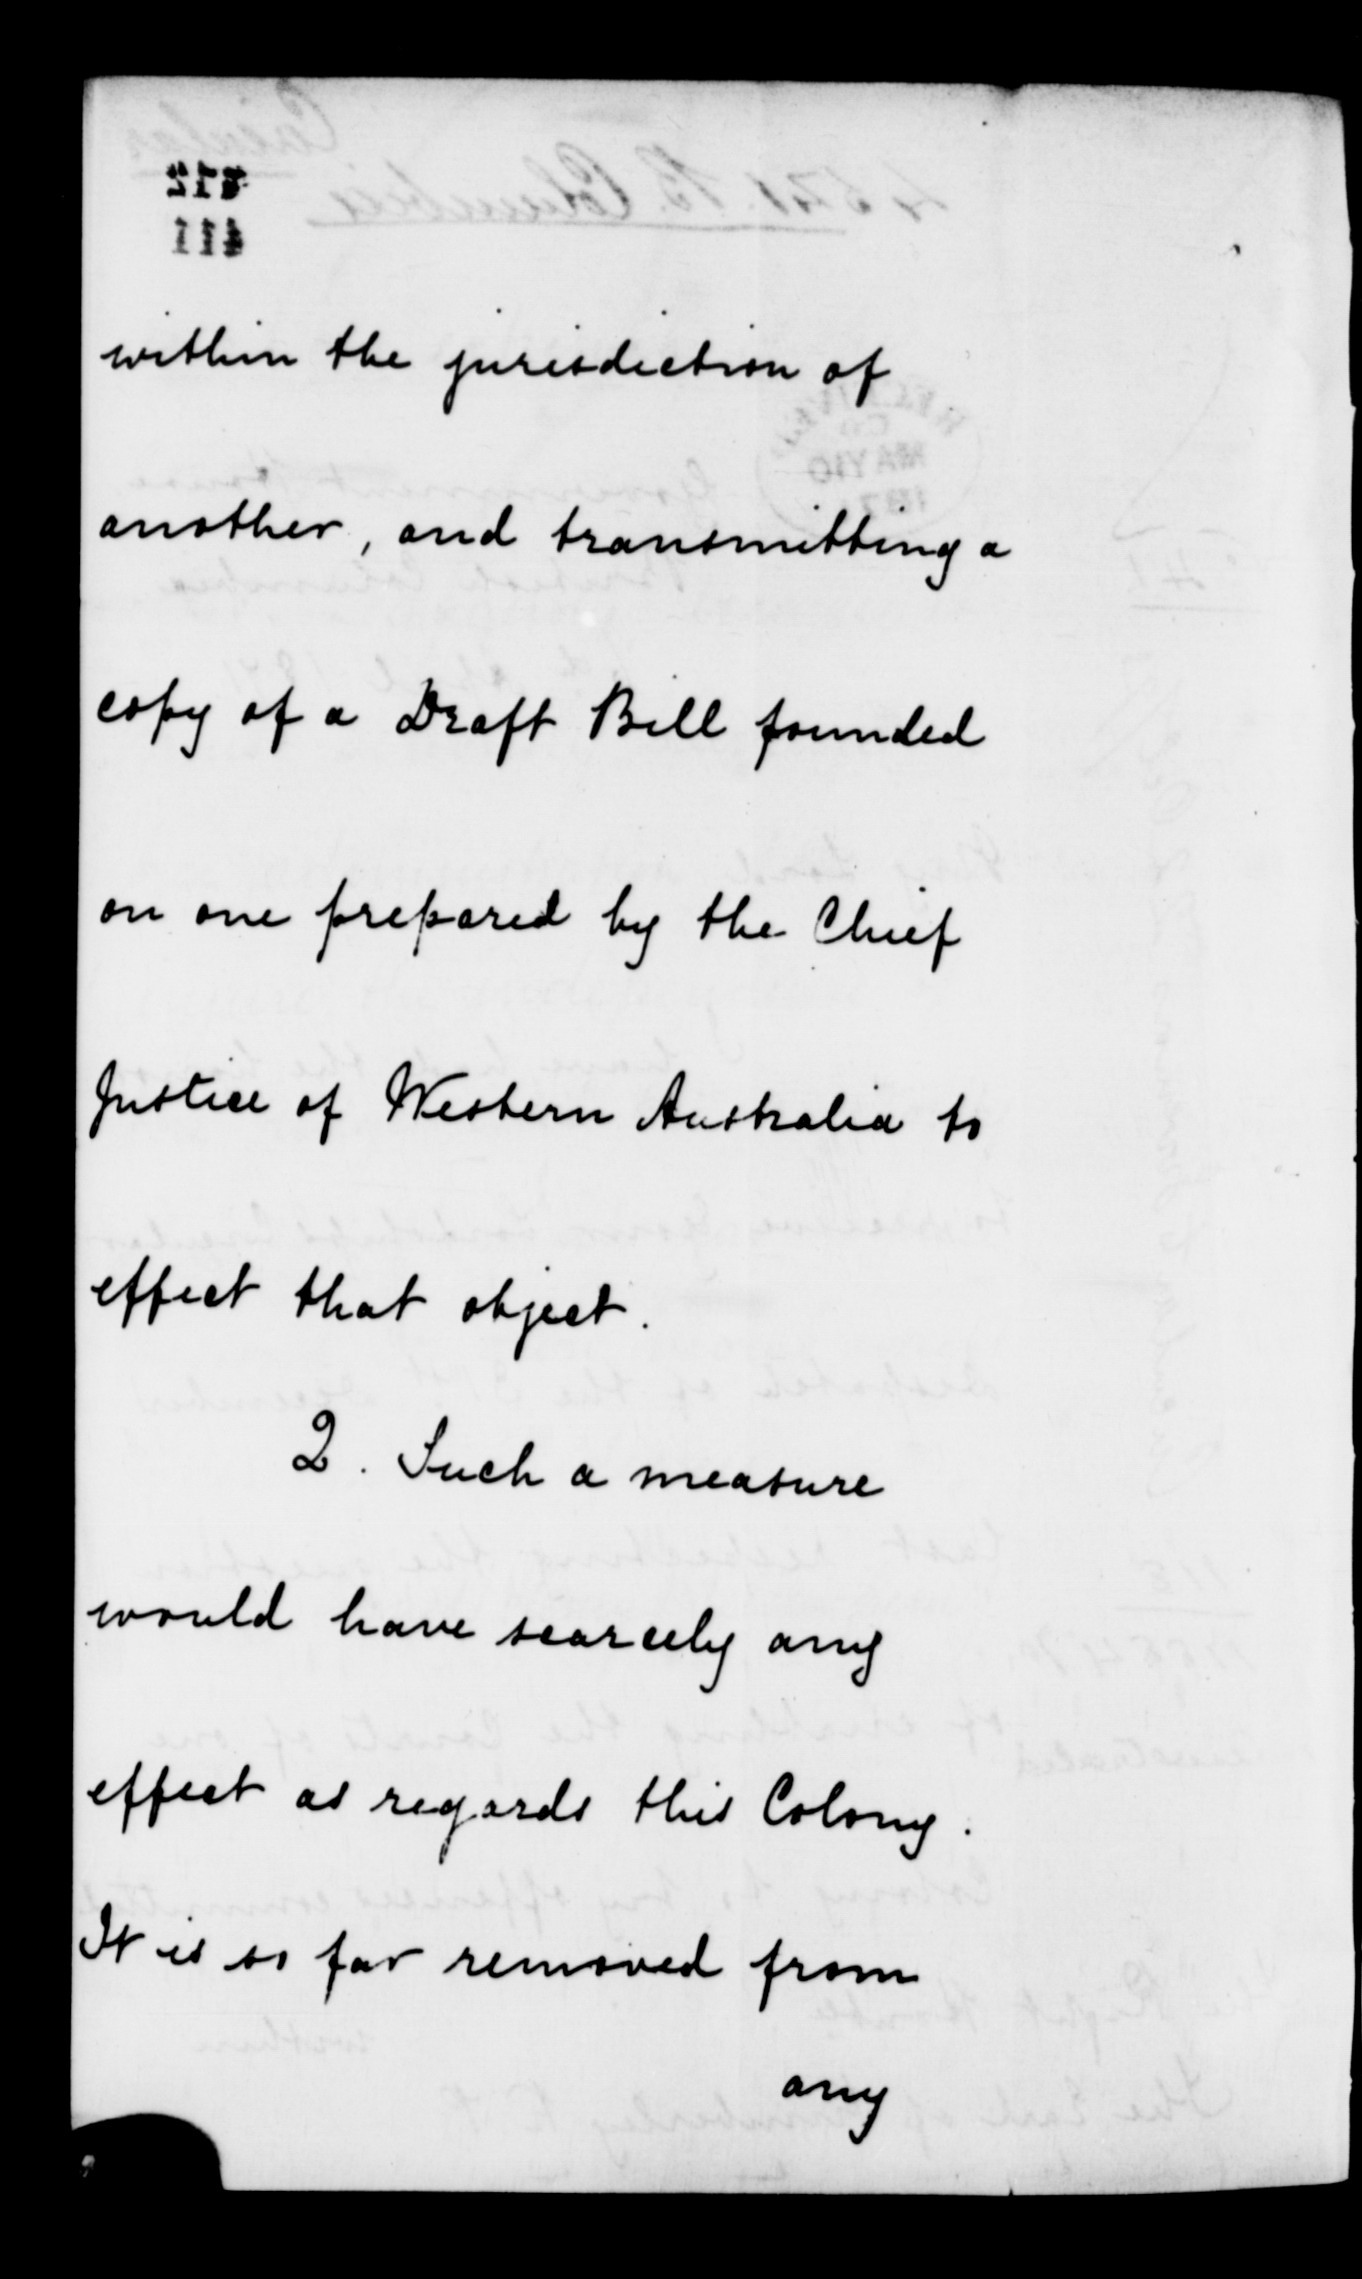 within the jurisdiction of
another, and transmitting a
copy of a Draft Bill founded
on one prepared by the Chief
Justice of Western Australia to
effect that object.
2. Such a measure
would have scarcely any
effect as regards this Colony.
It is so far removed from
any